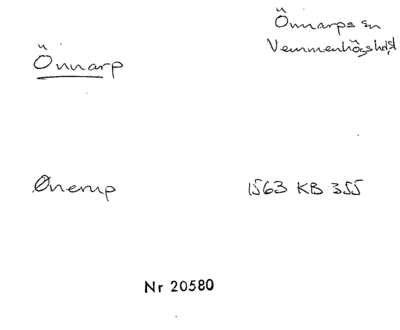 Önnarps sn
Vemmenhögs hd
Önnarp
Ønerup 1563 KB 355
Nr 20580